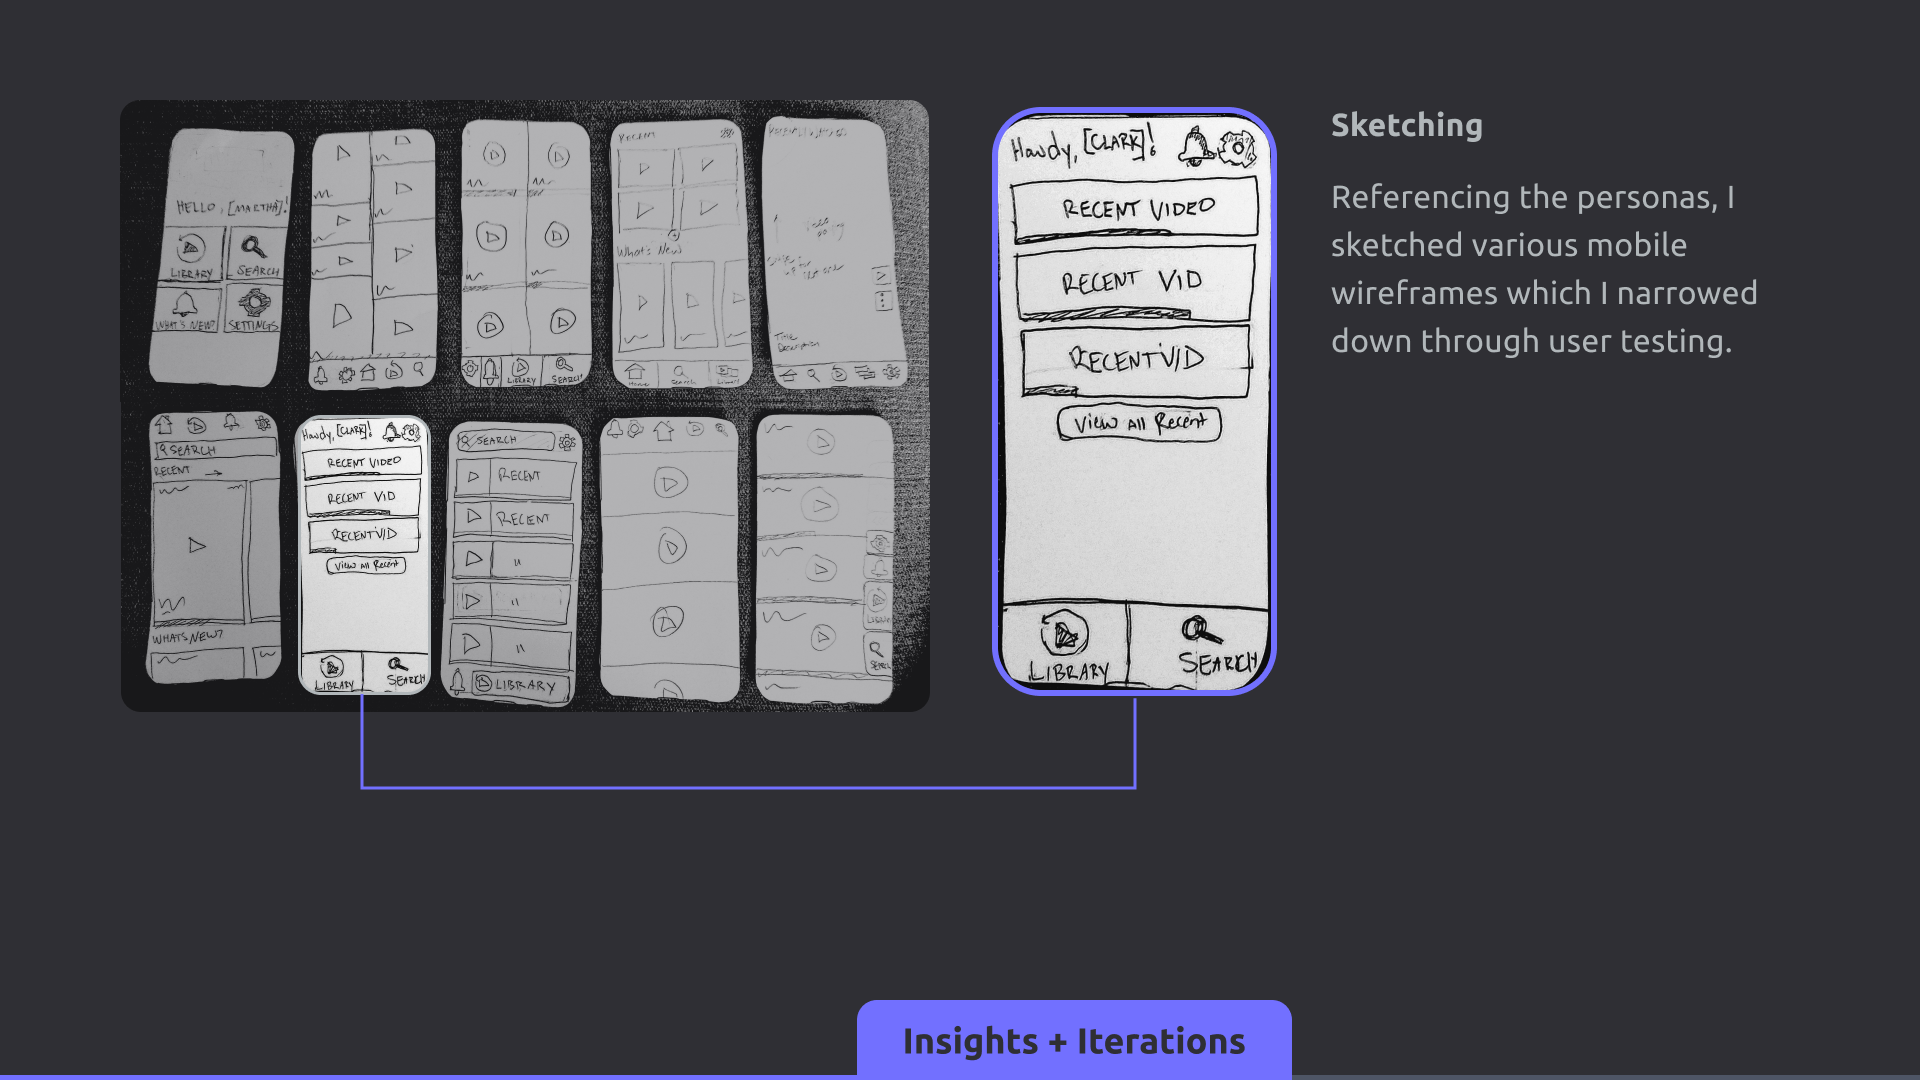 HELLO, [MARTHA]!
LIBRARY
SEARCH
WHAT'S NEW?
SETTINGS
LIBRARY
SEARCH
RECENT
What's New
Home
Search
Title
Description
SEARCH
RECENT
WHATS NEW?
Howdy, [CLARK]!
RECENT VIDEO
RECENT VID
RECENT VID
View All Recent
LIBRARY
SEARCH
SEARCH
RECENT
RECENT
"
"
"
LIBRARY
SEARCH
Howdy, [CLARK]!
RECENT VIDEO
RECENT VID
RECENT VID
View All Recent
LIBRARY
SEARCH
Sketching
Referencing the personas, I
sketched various mobile
wireframes which I narrowed
down through user testing.
Insights + Iterations